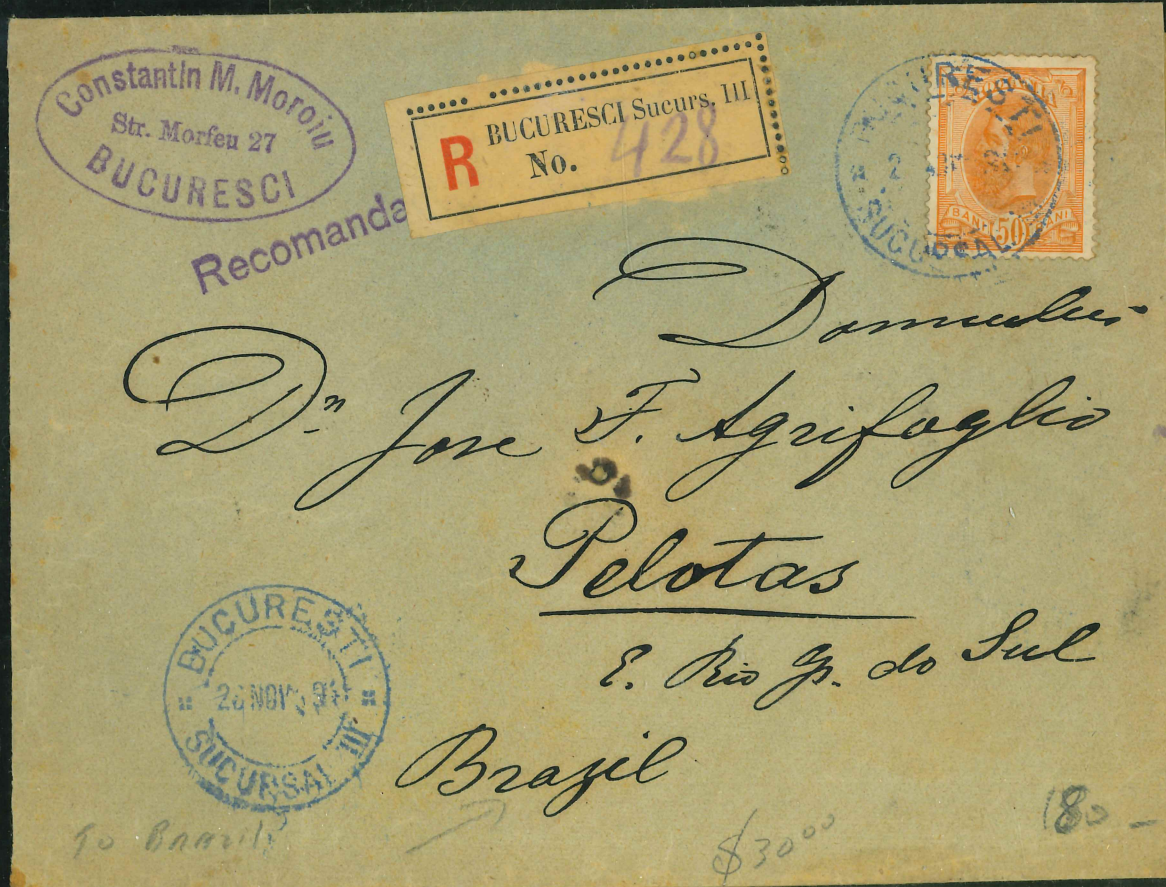 Constantin M. Moroiu
Str. Morfeu 27
BUCURESCI
Recomanda
R
BUCURESCI Sucurs. III
No. 428
BUCURESTI
SUCURSAL
BANI 50 BANI
Dn Jose F. Agrifoglio
Pelotas
E. Rio Gr. do Sul
Brazil
BUCURESTI
NOV
SUCURSAL III
To Brazil
$30 00
180 -